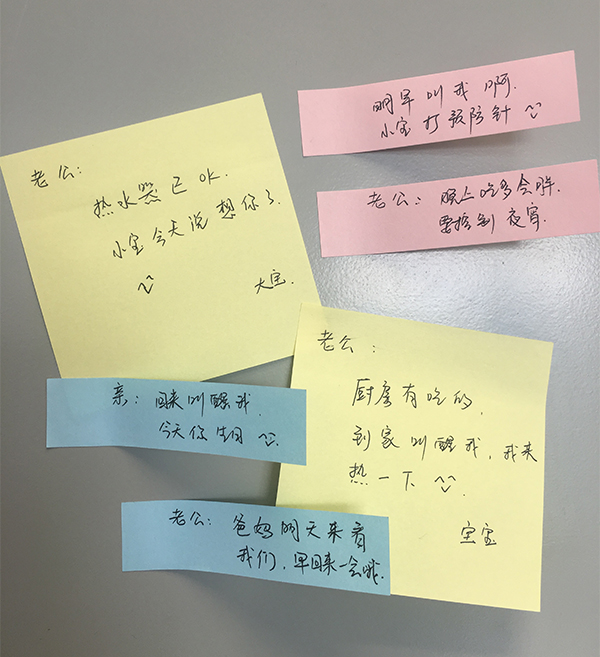 明早叫我啊
小宝打预防针
老公：晚上吃多会胖
要控制夜宵.
老公：
热水器已OK.
小宝今天说想你了
大宝.
老公：
厨房有吃的,
到家叫醒我，我来
热一下
宝宝
亲：回来叫醒我,
今天你生日
老公：爸妈明天来看
我们，早回来一会哦.